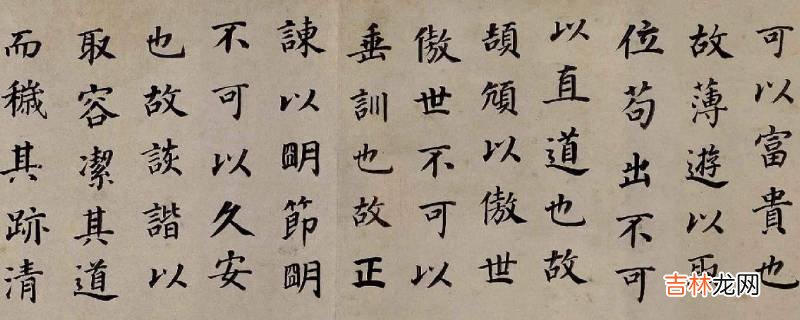 可以富貴也
故薄遊以
位苟出不可
以直道也故
頡頏以傲世
傲世不可以
垂訓也故正
諫以明節明
不可以久安
也故談諧以
取容潔其道
而穢其跡清
吉林龙网